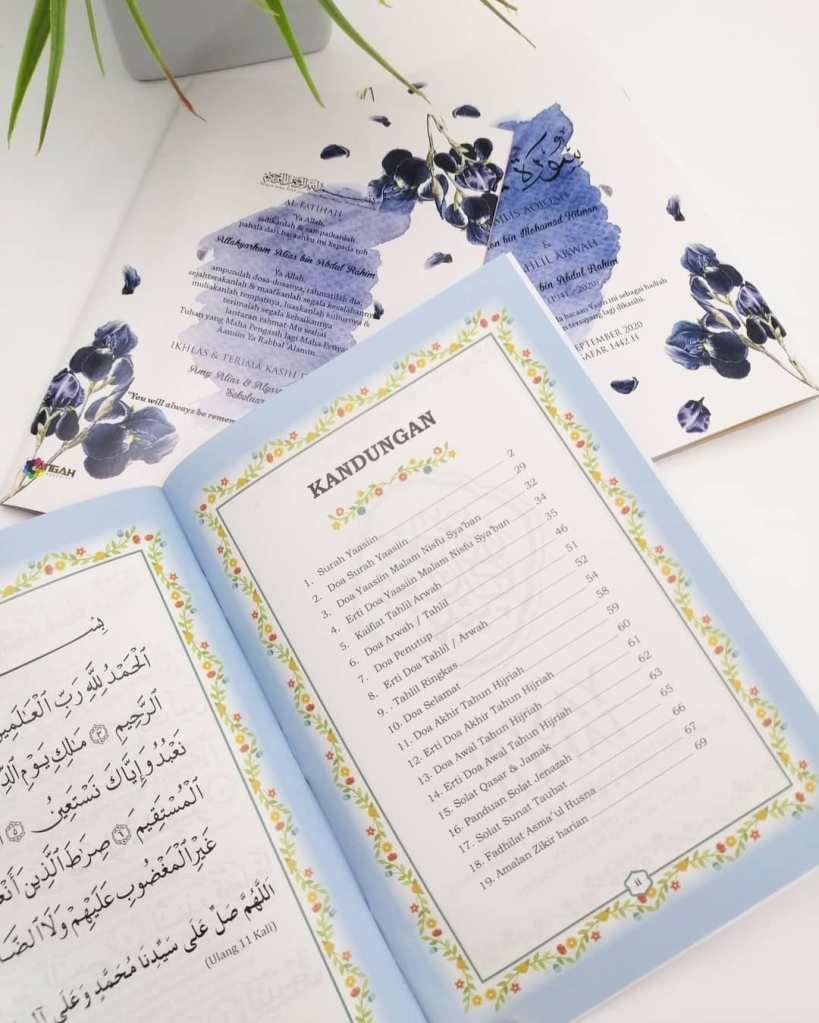 AL-FATIHAH
Ya Allah,
sadikanlah & sampaikanlah
pahala dari bacaanku ini kepada roh
Allahyarham Alias bin Abdul Rahim
Ya Allah,
ampunilah dosa-dosanya, rahmatilah dia,
sejahterakanlah & maafkanlah segala kesalahannya
muliakanlah tempatnya, luaskanlah kuburnya &
terimalah segala kebaikannya
lantaran rahmat-Mu wahai
Tuhan yang Maha Pengasih lagi Maha
Aamiin Ya Rabbal 'Alamin.
IKHLAS & TERIMA KASIH
Amy Alias &
"You will always be
سورة
bin Mohamad Hilman
&
TAHLIL ARWAH
bin Abdul Rahim
2020
bacaan Yasin ini sebagai hadiah
tersayang lagi dikasihi.
SEPTEMBER 2020
SAFAR 1442 H
KANDUNGAN
1. Surah Yaasiin 2
2. Doa Surah Yaasiin 29
3. Doa Yaasiin Malam Nisfu Sya'ban 32
4. Erti Doa Yaasiin Malam Nisfu Sya'ban 34
5. Kaifiat Tahlil Arwah 35
6. Doa Arwah / Tahlil 46
7. Doa Penutup 51
8. Erti Doa Tahlil / Arwah 52
9. Tahlil Ringkas 54
10. Doa Selamat 58
11. Doa Akhir Tahun Hijriah 59
12. Erti Doa Akhir Tahun Hijriah 60
13. Doa Awal Tahun Hijriah 61
14. Erti Doa Awal Tahun Hijriah 62
15. Solat Qasar & Jamak 63
16. Panduan Solat Jenazah 65
17. Solat Sunat Taubat 66
18. Fadhilat Asma'ul Husna 67
19. Amalan Zikir harian 69
ii
ٱلْحَمْدُ لِلَّهِ رَبِّ ٱلْعَـٰلَمِينَ
ٱلرَّحِيمِ ٣ مَـٰلِكِ يَوْمِ
نَعْبُدُ وَإِيَّاكَ نَسْتَعِينُ ٥
ٱلْمُسْتَقِيمَ ٦ صِرَٰطَ ٱلَّذِينَ
غَيْرِ ٱلْمَغْضُوبِ عَلَيْهِمْ وَلَا
اَللّٰهُمَّ صَلِّ عَلَى سَيِّدِنَا مُحَمَّدٍ وَعَلَى
(Ulang 11 Kali)